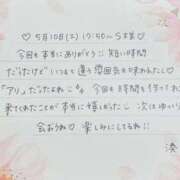 ♡ 5月10日(土) 17:50〜 Sさま♡
今回も本当にありがとう!! 短い時間
だったけど いつもと違う雰囲気を味わえたし♡
「アリ」だったよね♡ 今回も時間を作って
来てくれたことが本当に嬉しかったし 次はゆっくり
会おうね♡ 楽しみにしてるね!!
湊